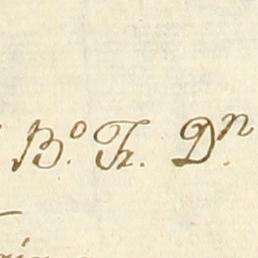 B.º Fr. D.ⁿ